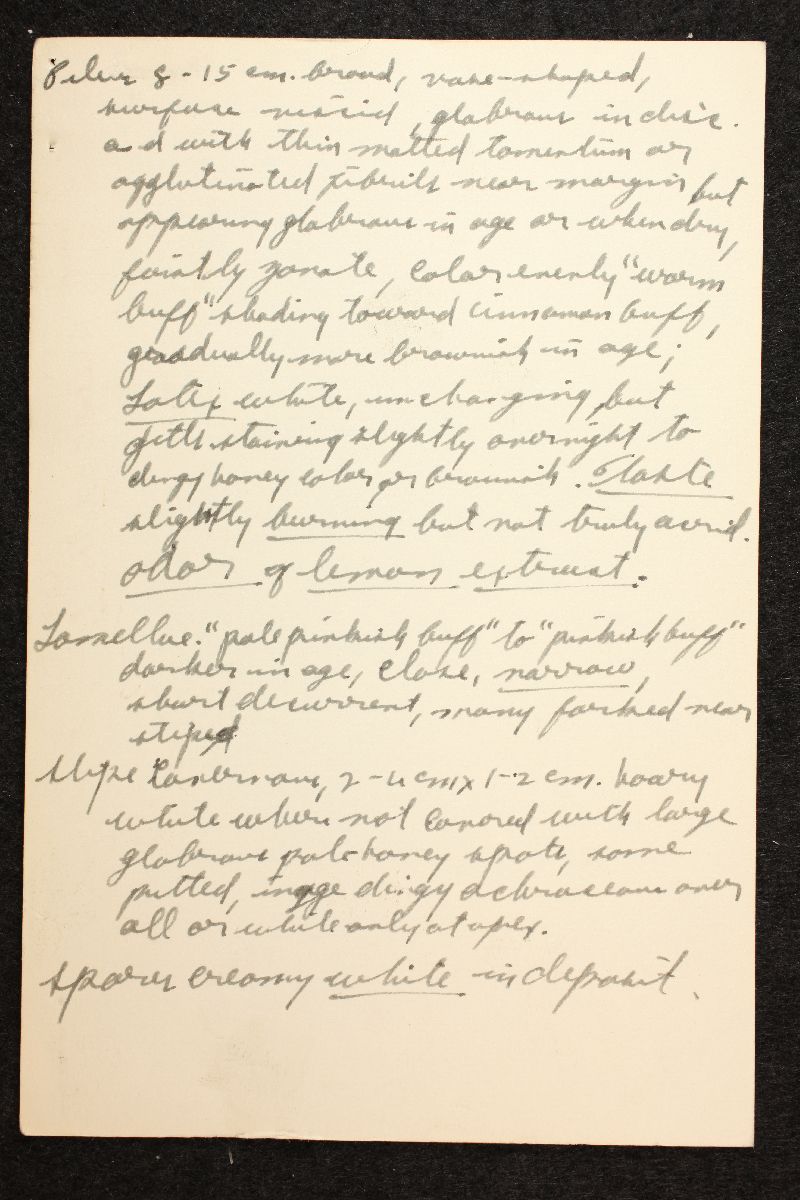 Pileus 8-15 cm. broad, vase-shaped,
surface viscid, glabrous in disc.
a d with thin matted tomentum or
agglutinated fibrils near margin but
appearing glabrous in age or when dry,
faintly zonate, color evenly "warm
buff" shading toward cinnamon buff,
gradually more brownish in age;
Latex white, unchanging, but
gills staining slightly overnight to
dingy honey color or brownish. Taste
slightly burning but not truly acrid.
odor of lemon extract.
Lamellae. "pale pinkish buff" to "pinkish buff"
darker in age, close, narrow,
short decurrent, many forked near
stipe
Stipe cavernous, 2-4 cm x 1-2 cm. hoary
white when not covered with large
glabrous pale honey spots, some
pitted, in age dingy ochraceous over
all or white only at apex.
spores creamy white in deposit.